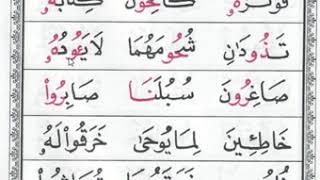 كَالِحُونَ كِتَابُهُ
تَذُودَانِ شُحُومَهُمَا لَا يَئُودُهُ
صَاغِرُونَ سُبُلَنَا صَابِرُوا
خَاطِئِينَ لِمَا يُوحَى خَرَقُوا لَهُ